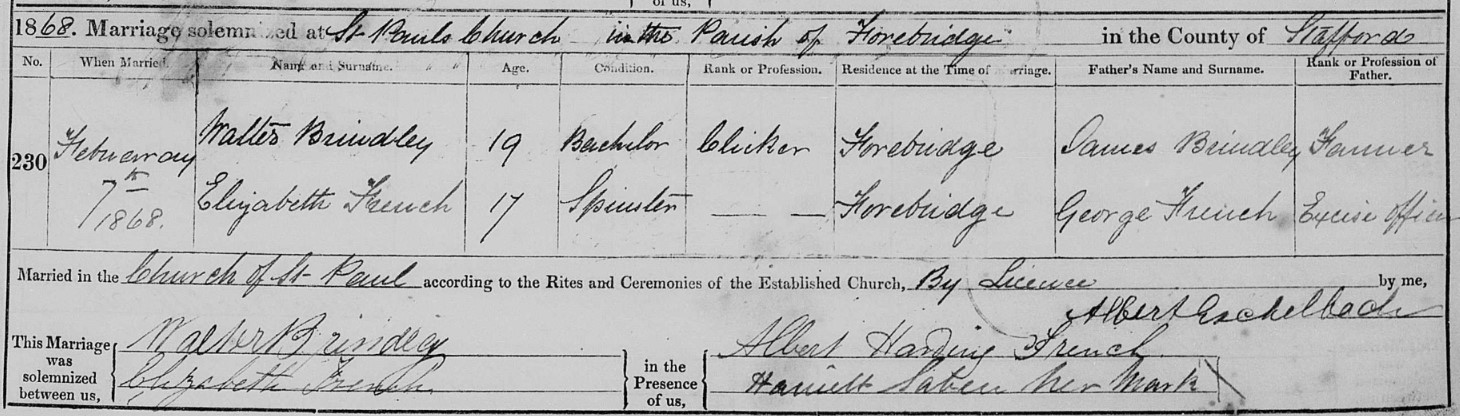 of us,
1868. Marriage solemnized at St Pauls Church in the Parish of Forebridge in the County of Stafford
No. When Married. Name and Surname. Age. Condition. Rank or Profession. Residence at the Time of Marriage. Father's Name and Surname. Rank or Profession of Father.
230 February 7th 1868. Walter Brindley 19 Bachelor Clicker Forebridge James Brindley Farmer
Elizabeth French 17 Spinster — — Forebridge George French Excise officer
Married in the Church of St Paul according to the Rites and Ceremonies of the Established Church, By Licence by me,
Albert Eschelbach
This Marriage was solemnized between us,
Walter Brindley
Elizabeth French
in the Presence of us,
Albert Harding French
Harriett her Mark